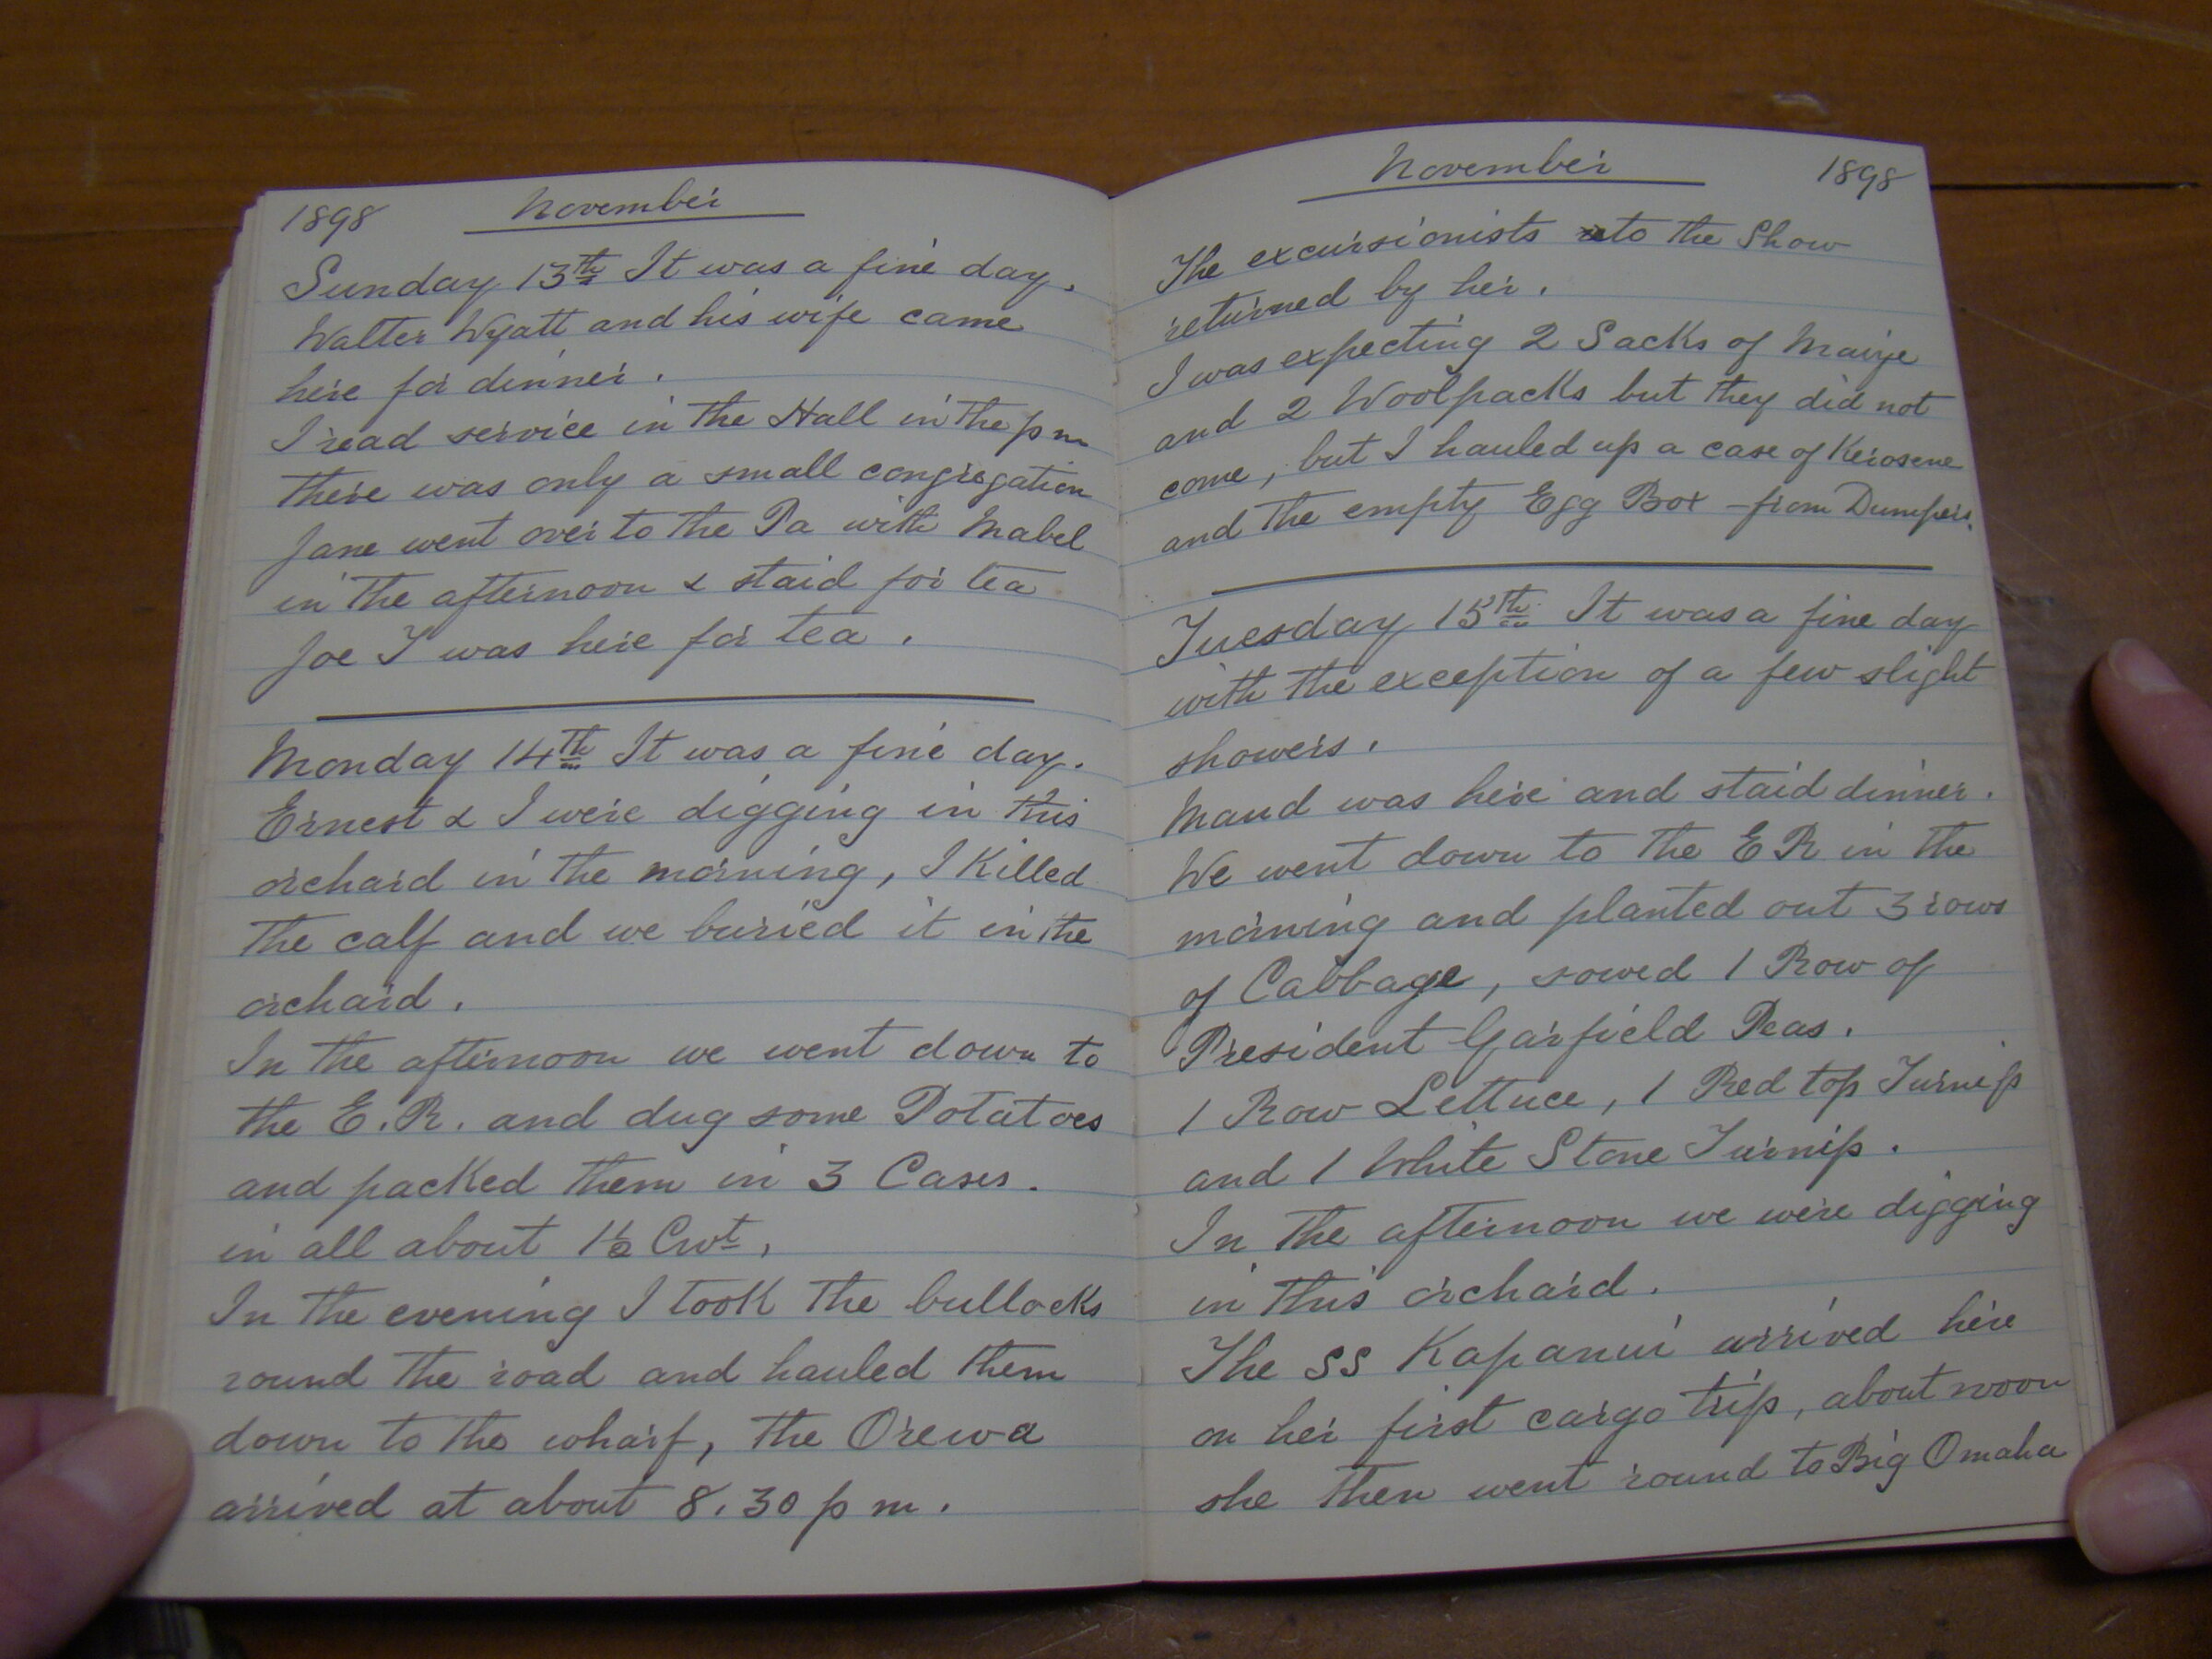 1898 November
Sunday 13th It was a fine day.
Walter Wyatt and his wife came
here for dinner.
I read service in the Hall in the p m
there was only a small congregation
Jane went over to the Pa with Mabel
in the afternoon & staid for tea
Joe T was here for tea.
Monday 14th It was a fine day.
Ernest & I were digging in this
orchard in the morning, I Killed
the calf and we buried it in the
orchard.
In the afternoon we went down to
the E.R. and dug some Potatoes
and packed them in 3 Cases.
in all about 1½ Cwt,
In the evening I took the bullocks
round the road and hauled them
down to the wharf, the Orewa
arrived at about 8.30 p m.
November 1898
The excursionists to the Show
returned by her.
I was expecting 2 Sacks of Maize
and 2 Woolpacks but they did not
come, but I hauled up a case of Kerosene
and the empty Egg Box - from Dumpers.
Tuesday 15th It was a fine day
with the exception of a few slight
showers.
Maud was here and staid dinner.
We went down to the E R in the
morning and planted out 3 rows
of Cabbage, sowed 1 Row of
President Garfield Peas.
1 Row Lettuce, 1 Red top Turnip
and 1 White Stone Turnip.
In the afternoon we were digging
in this orchard.
The SS Kapanui arrived here
on her first cargo trip, about noon
she then went round to Big Omaha